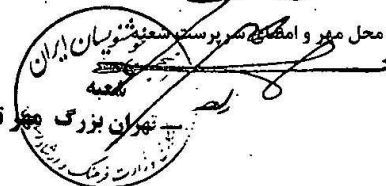 محل مهر و امضای سرپرست شعبه
خوشنویسان ایران
شعبه
تهران بزرگ
وزارت فرهنگ و ارشاد